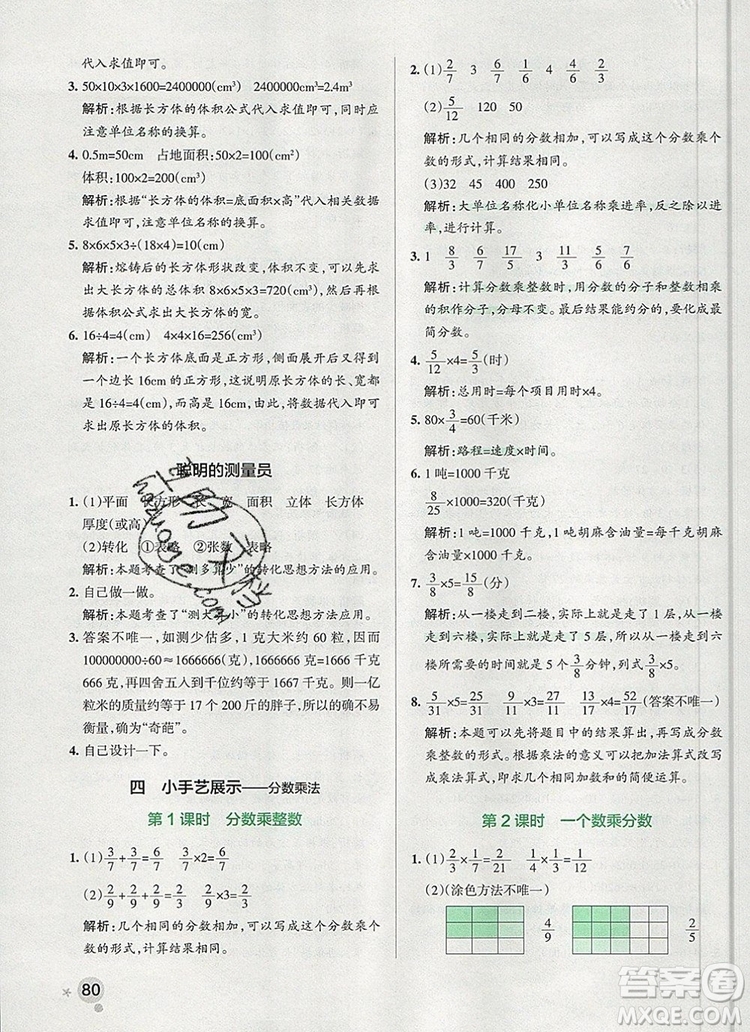 代入求值即可。
3. 50×10×3×1600=2400000(cm³)　2400000(cm³)=2.4m³
解析：根据长方体的体积公式代入求值即可，同时应
注意单位名称的换算。
4. 0.5m=50cm　占地面积：50×2=100(cm²)
体积：100×2=200(cm³)
解析：根据“长方体的体积=底面积×高”代入相关数据
求值即可。注意单位名称的换算。
5. 8×6×5×3÷(18×4)=10(cm)
解析：熔铸后的长方形形状改变，体积不变，可以先求
出大长方体的总体积 8×6×5×3=720(cm³)，然后根据
长方体体积公式求出大长方体的宽。
6. 16÷4=4(cm)　4×4×16=256(cm³)
解析：一个长方体底面是正方形，侧面展开后又得到了
一个边长 16cm 的正方形，说明原来长方体的长、宽都
是 16÷4=4(cm)，高是 16cm，由此，将数据代入即可
求出原长方体的体积。
聪明的测量员
1. (1)平面　长方形　长　宽　面积　立体　长方体
厚度(或高)
(2)转化　①表略　②张数　表略
解析：本题考查了“测多算少”的转化思想方法的应用。
2. 自己做一做。
解析：本题考查了“测大算小”的转化思想方法应用。
3. 答案不唯一，如测少估多，1 克大米约 60 粒，因而
100000000÷60≈1666666(克)，1666666 克=1666 千克
666 克，再四舍五入到千位约等于 1667 千克。则一亿
粒米的质量约等于 17 个 200 斤的胖子，所以不易用秤
衡量，确为“奇葩”。
4. 自己设计一下。
四　小手艺展示——分数乘法
第 1 课时　分数乘整数
1. (1) 3/7 + 3/7 = 6/7　3/7 ×2= 6/7
(2) 2/9 + 2/9 + 2/9 = 2/3　2/9 ×3= 2/3
解析：几个相同的分数相加，可以写成这个分数乘几个
数的形式，计算结果相同。
80
2. (1) 2/7　3/4　1/6　4　6/7　3/5
(2) 5/12　120　50
解析：几个相同的分数相加可以写成这个分数乘个
数的形式，计算结果相同。
(3)32　45　400　250
解析：大单位名称化小单位名称乘进率，反之除以进
率，进行计算。
3. 1　8/3　6/17　17/5　11　3/2　6/13
解析：计算分数乘整数时，用分数的分子和整数相乘
的积作分子，分母不变。最后结果能约分的，要约成最
简分数。
4. 5/12 ×4= 5/3 (时)
解析：总用时=每个项目用时×4。
5. 80× 3/4 =60(千米)
解析：路程=速度×时间。
6. 1 吨=1000 千克
8/25 ×1000=320(千克)
解析：1 吨=1000 千克，1000 千克胡麻含油量=每千克胡麻
含油量×1000。
7. 3/8 ×5= 15/8 (分)
解析：从一楼走到二楼，实际上就是走了 1 层，所以从
一楼走到六楼，实际上就是走了 5 层，所以到六楼
所需要的时间就是 5 个 3/8 分钟，列式 3/8 ×5。
8. 5/31 ×5= 25/31　3/17 ×5= 15/17　13/17 ×4= 52/17 (答案不唯一)
解析：本题可以先将题目中的结果改写，再写成分数乘
整数的形式。根据乘法的意义，可以把加法算式改写
成乘法算式，即求几个相同加数的和的简便运算。
第 2 课时　一个数乘分数
1. (1) 2/3 × 1/7 = 2/21　1/4 × 1/3 = 1/12
(2)(涂色方法不唯一)
4/9　2/5
答案圈
MXQE.COM